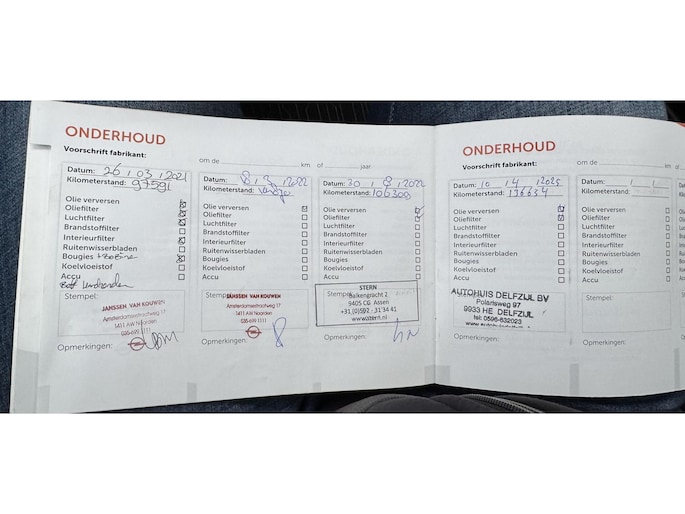 ONDERHOUD
Voorschrift fabrikant:
om de km of jaar
Datum: 26 / 03 / 2021
Kilometerstand: 97591
Olie verversen
Oliefilter
Luchtfilter
Brandstoffilter
Interieurfilter
Ruitenwisserbladen
Bougies
Koelvloeistof
Accu
Stempel:
JANSSEN VAN KOUWEN
Amsterdamsestraatweg 17
1411 AW Naarden
035-699 1111
Opmerkingen:
Datum: 8 / 3 / 2022
Kilometerstand:
Olie verversen
Oliefilter
Luchtfilter
Brandstoffilter
Interieurfilter
Ruitenwisserbladen
Bougies
Koelvloeistof
Accu
Stempel:
JANSSEN VAN KOUWEN
Amsterdamsestraatweg 17
1411 AW Naarden
035-699 1111
Opmerkingen:
Datum: 30 / 8 / 2022
Kilometerstand: 106309
Olie verversen
Oliefilter
Luchtfilter
Brandstoffilter
Interieurfilter
Ruitenwisserbladen
Bougies
Koelvloeistof
Accu
STERN
Balkengracht 2
9405 CG Assen
+31 (0)592 - 31 34 41
www.stern.nl
Opmerkingen:
ONDERHOUD
Voorschrift fabrikant:
om de km
Datum: 10 / 4 / 2025
Kilometerstand: 136634
Olie verversen
Oliefilter
Luchtfilter
Brandstoffilter
Interieurfilter
Ruitenwisserbladen
Bougies
Koelvloeistof
Accu
AUTOHUIS DELFZIJL BV
Polarisweg 97
9933 HE DELFZIJL
tel: 0596-632023
Opmerkingen:
Datum: / /
Kilometerstand:
Olie verversen
Oliefilter
Luchtfilter
Brandstoffilter
Interieurfilter
Ruitenwisserbladen
Bougies
Koelvloeistof
Accu
Stempel:
Opmerkingen: